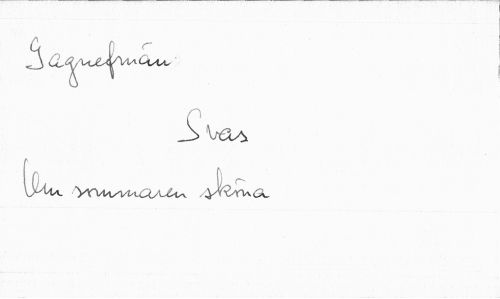 Gagnefmän
Svas
Um sommaren sköna